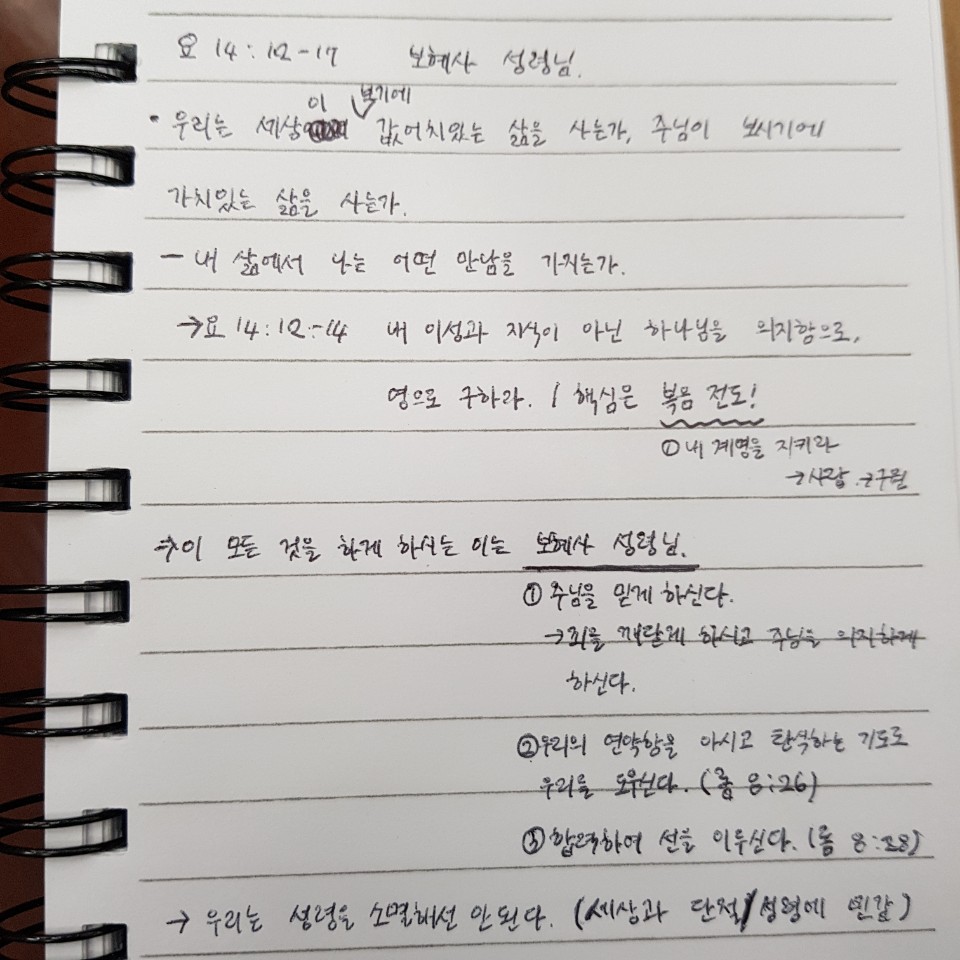 요 14:12-17 보혜사 성령님.
이 보기에
• 우리는 세상 값어치있는 삶을 사는가, 주님이 보시기에
가치있는 삶을 사는가.
- 내 삶에서 나는 어떤 만남을 가지는가.
→요 14:12-14 내 이성과 지식이 아닌 하나님을 의지함으로,
영으로 구하라. / 핵심은 복음 전도!
① 내 계명을 지키라
→사랑 →구원
→이 모든 것을 하게 하시는 이는 보혜사 성령님.
① 주님을 믿게 하신다.
→죄를 깨닫게 하시고 주님을 의지하게
하신다.
②우리의 연약함을 아시고 탄식하는 기도로
우리를 도우신다. (롬 8:26)
③ 합력하여 선을 이루신다. (롬 8:28)
→ 우리는 성령을 소멸해선 안된다. (세상과 단절/성령에 민감)